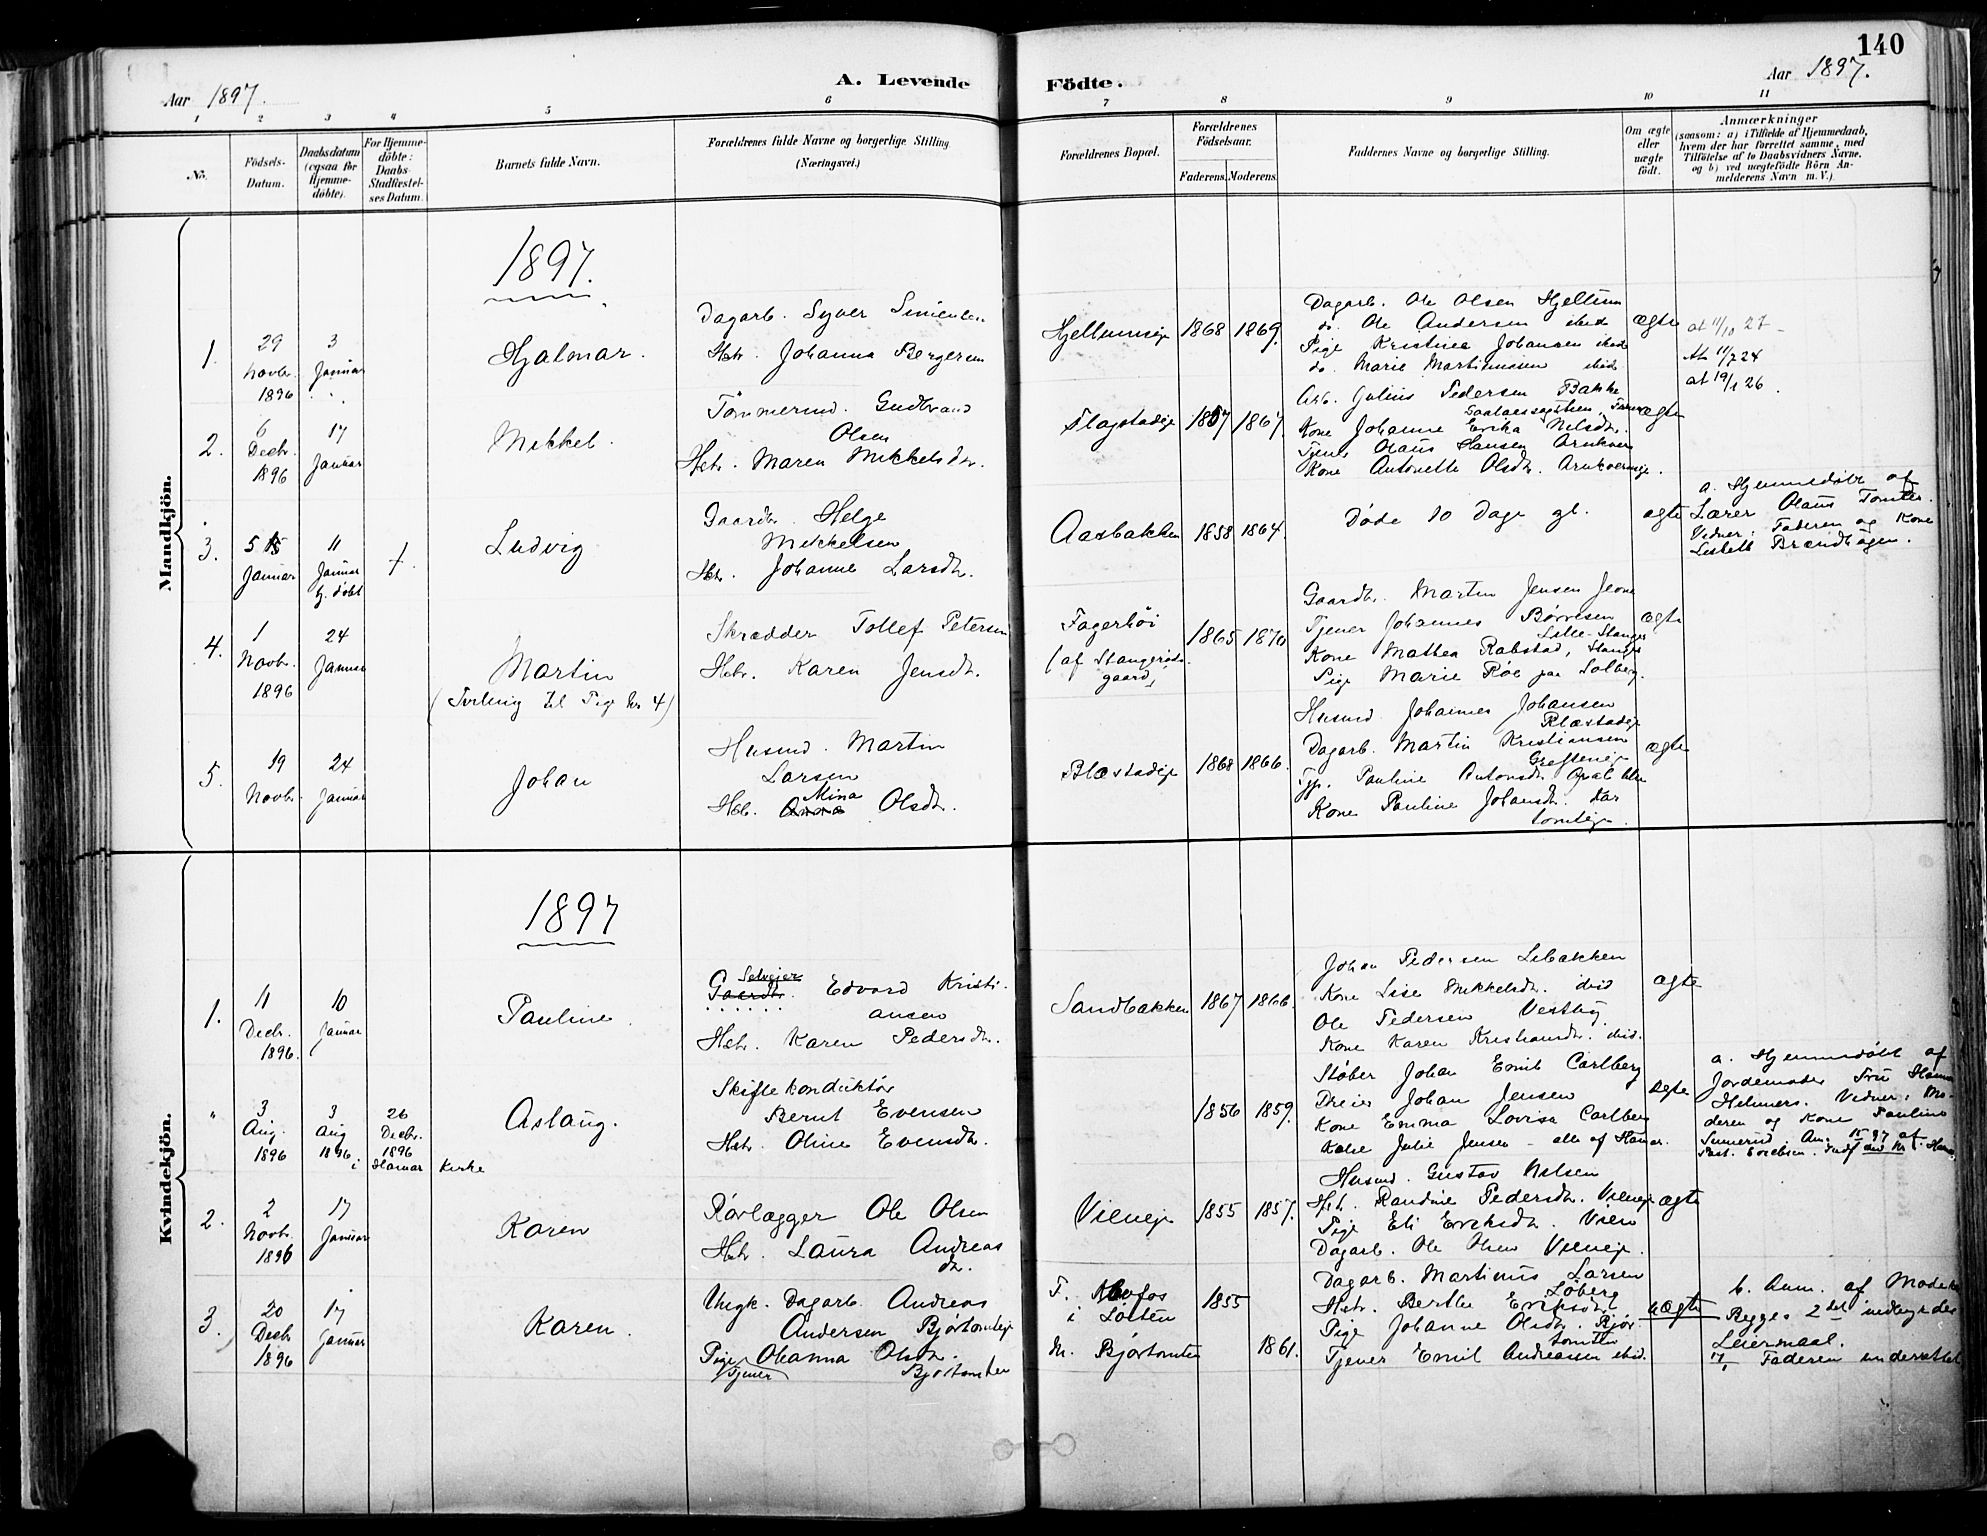 140
Aar 1897.
A. Levende
Födte.
Aar 1897.
1 2 3 4 5 6 7 8 9 10 11
No.
Födsels-
Datum.
Daabsdatum
(ogsaa for
Hjemme-
döbte).
For Hjemme-
döbte:
Daabs-
Stadfæstel-
ses Datum.
Barnets fulde Navn.
Forældrenes fulde Navne og borgerlige Stilling
(Næringsvei.)
Forældrenes Bopæl.
Forældrenes
Födselsaar.
Faderens. Moderens.
Faddernes Navne og borgerlige Stilling.
Om ægte
eller
uægte
födt.
Anmærkninger
(saasom: a) i Tilfælde af Hjemmedaab,
hvem der har forrettet samme, med
Tilföielse af to Daabsvidners Navne,
og b) ved uægtefödte Börn An-
melderens Navn m. V.).
Mandkjön.
1897.
1.
29
Novbr.
1896
3
Januar
Hjalmar.
Dagarb. Syver Simensen
Hstr. Johanna Bergersen
Hjellumseje
1868 1869.
Dagarb. Ole Olsen Hjellum
do. Ole Andersen ibid
Pige Kristine Johansen ibid
do. Marie Martinusen ibid.
ægte
at 11/10 27
Att 11/7 24
at 19/1 26.
2.
6
Decbr.
1896
17
Januar
Mikkel.
Tømmermd. Gudbrand
Olsen
Hstr. Maren Mikkelsdtr.
Flagstadeje
1857 1867.
Arb. Julius Pedersen Bakke
Kone Johanne Erika Nilsdtr.
Tjener Olaus Hansen Arnkvern
Kone Antonette Olsdtr. Arnkverneje.
ægte
3.
5
Januar
11
Januar
hj. døbt
†.
Ludvig
Gaardbr. Helge
Mikkelsen
Hstr. Johanne Larsdtr.
Aasbakken
1858 1864.
Døde 10 Dage gl.
ægte
a. Hjemmedøbt af
Lærer Olaus Tomter.
Vidner: Faderen og Kone
Lisbeth Brændhagen.
4.
1
Novbr.
1896
24
Januar
Martin
(Tvilling til Pige No 4)
Skrædder Tollef Petersen
Hstr. Karen Jensdtr.
Fagerhøi
(af Stangeriis-
gaard)
1865 1870
Gaardbr. Martin Jensen Jevne
Tjener Johannes Børresen
Lille-Stange
Kone Mathea Rabstad, Stange
Pige Marie Røe paa Solberg.
ægte
5.
19
Novbr.
24
Januar
Johan
Husmd. Martin
Larsen
Mina
Hstr. Anna Olsdtr.
Blæstadeje
1868 1866.
Husmd. Johannes Johansen
Blæstadeje
Dagarb. Martin Kristiansen
Grefteneje
Tjp. Pauline Antonsdtr. Opal
Kone Pauline Johansdtr. Kar
tomteje.
ægte
Kvindekjön.
1897
1.
11
Decbr.
1896.
10
Januar
Pauline.
Selveier
Gaardbr. Edvard Kristi-
ansen
Hstr. Karen Pedersdtr.
Sandbakken
1867 1866.
Johan Pedersen Libakken
Kone Lise Mikkelsdtr. ibid
Ole Pedersen Vestby
Kone Karen Kristiansdtr. ibid.
ægte
"
3
Aug.
1896
3
Aug
1896
26
Decbr.
1896
i Hamar Kirke
Aslaug.
Skiftekonduktør
Bernt Evensen
Hstr. Oline Evensdtr.
1856 1859.
Støber Johan Emil Carlberg
Dreier Johan Jensen
Kone Emma Lovisa Carlberg
Kone Julie Jensen - alle af Hamar.
ægte
a. Hjemmedøbt af
Jordemoder Fru
Helmers. Vidner: Mo-
deren og Kone Pauline
2.
2
Novbr.
1896
17
Januar
Karen
Rørlægger Ole Olsen
Hstr. Laura Andreas
dtr.
Vieneje
1855 1857.
Husmd. Gustav Nilsen
Hstr. Randine Pedersdtr. Vieneje
Pige Eli Eriksdtr. Vien
Dagarb. Ole Olsen Vieneje.
ægte
3.
20
Decbr.
1896
17
Januar
Karen.
Ungk. Dagarb. Andreas
Andersen Bjørtomteje
Pige Ohanna Olsdtr.
(Tjener) Bjørtomten
F.
i Løiten
M. Bjørtomten
1855
1861.
Dagarb. Martinus Larsen
Løberg
Hstr. Berthe Eriksdtr
Pige Johanne Olsdtr. Bjør-
tomten
Tjener Emil Andreassen ibid.
uægte
b. Anm. af Moderen
Begges 2det indbyrdes
Leiermaal.
17/1 Faderen underrettet